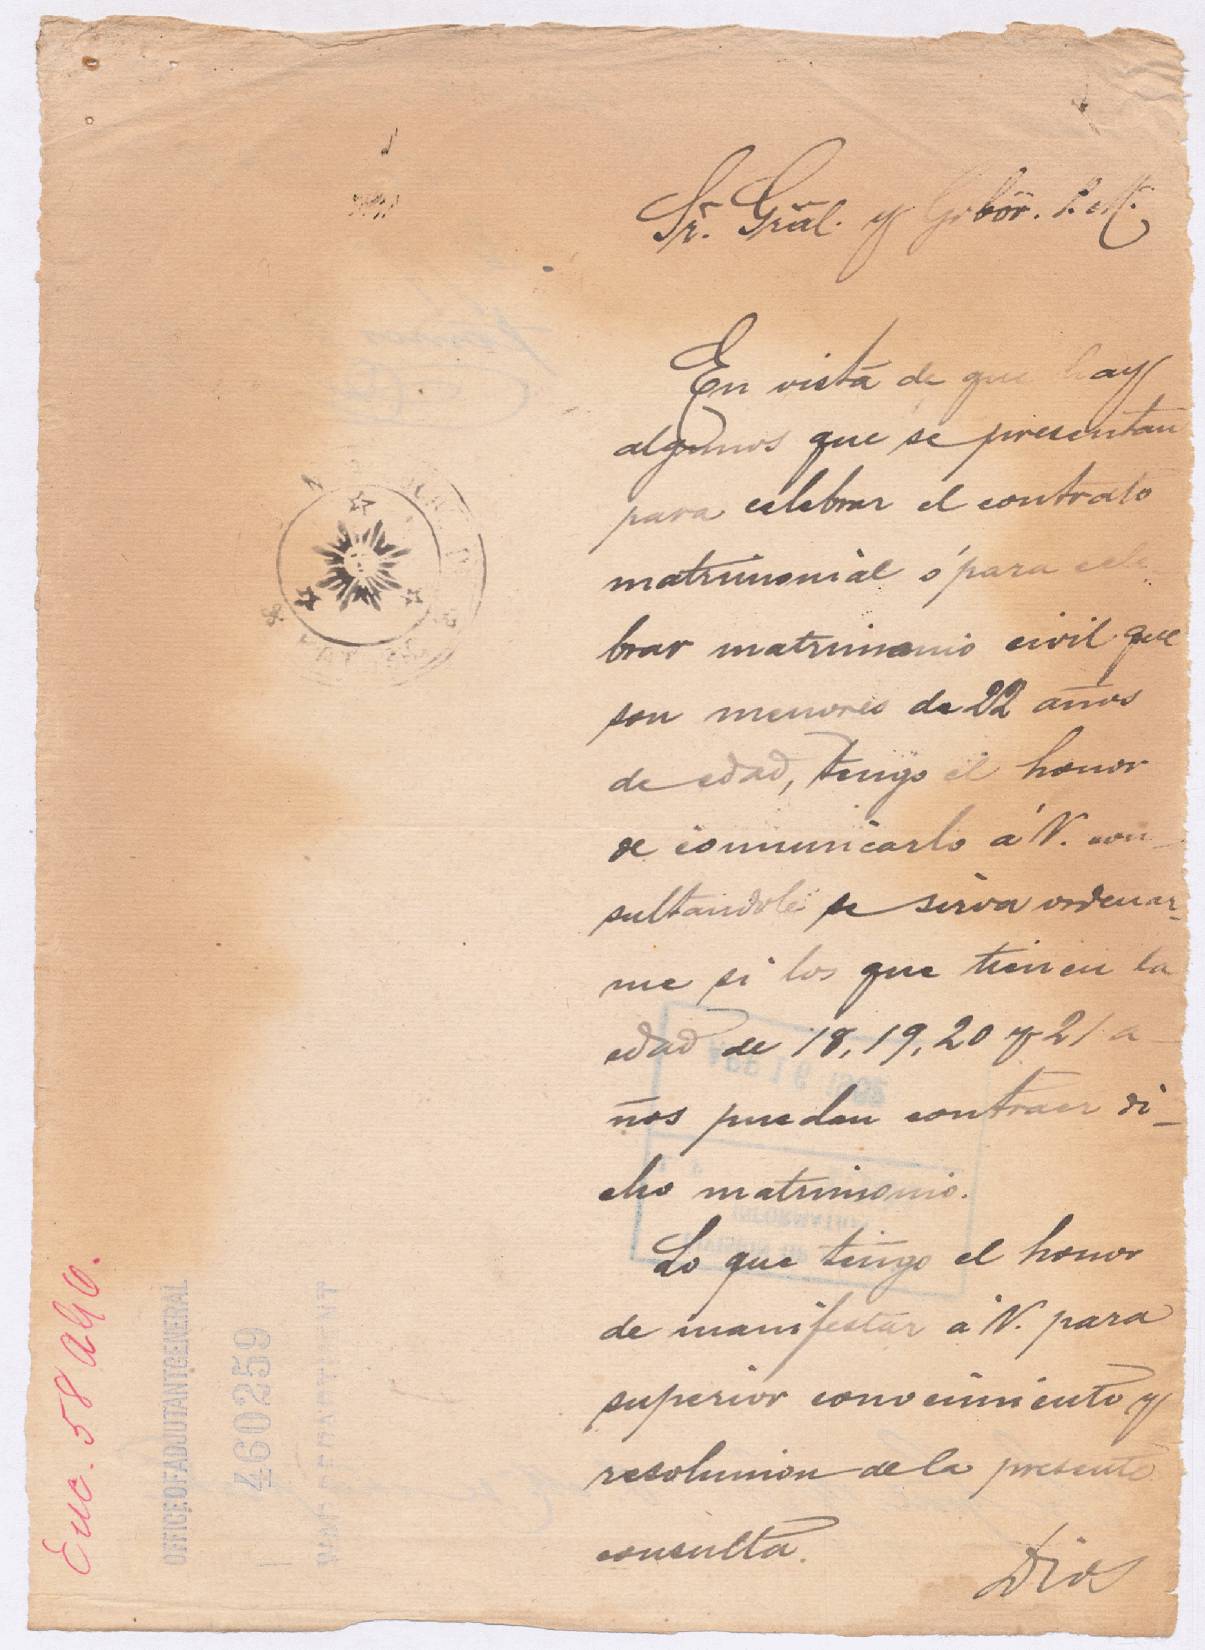 Sr. Grãl. y Gobōr. P. M.
En vista de que hay
algunos que se presentan
para celebrar el contrato
matrimonial ó para cele-
brar matrimonio civil que
son menores de 22 años
de edad, tengo el honor
de comunicarlo á V. con-
sultandole se sirva ordenar-
me si los que tienen la
edad de 18, 19, 20 y 21 a-
ños pueden contraer di-
cho matrimonio.
Lo que tengo el honor
de manifestar á V. para
superior conocimiento y
resolucion de la presente
consulta.
Dios
Enc. 58 AGO.
OFFICE OF ADJUTANT GENERAL
460259
WAR DEPARTMENT
APR 16 1902
INFORMATION